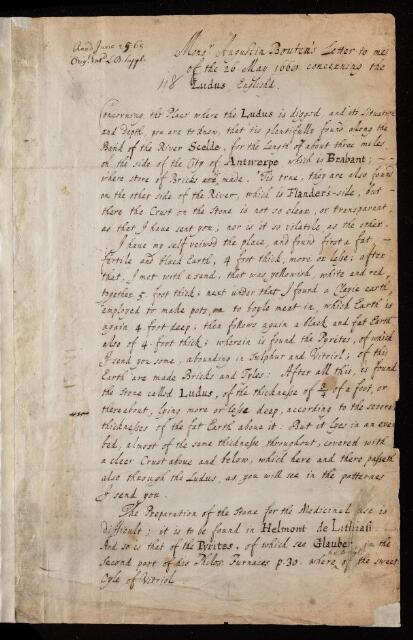 Read June 25 68
Monsr Augustin Bouten's Letter to me
of the 26 May 1668 concerning the
118 Ludus, English'd.
Concerning the Place where the Ludus is digged, and its Situation
and Depth, you are to know, that tis plentifully found along the
Bend of the River Scelde, for the Length of about three miles
on the side of the City of Antwerpe, which is Brabant;
where store of Bricks are made. Tis true, they are also found
on the other side of the River, which is Flanders-side, but
there the Crust on the Stone is not so clean, or transparent,
as that I have sent you; nor is it so volatile, as the other.
I have my self veiwed the place, and found first a fat,
fertile and black Earth, 4 foot thick, more or lesse; after
that, I met with a sand, that was yellowish, white and red,
together 5 foot thick; next under that I found a Clayie earth
employed to make pots, to boyle meat in, which Earth is
again 4 foot deep; then follows again a black and fat Earth
also of 4 foot thick; wherein is found the Pyrites, of which
I send you some, abounding in Sulphur and Vitriol; of this
Earth are made Bricks and Tyles: After all this, is found
the stone called Ludus, of the thicknesse of of a foot, or
thereabout, lying more or lesse deep, according to the severall
thicknesses of the fat Earth above it. But it lyes in an even
bed, almost of the same thicknesse throughout, covered with
a cleer Crust above and below, which here and there passeth
also through the Ludus, as you will see in the patternes
I send you.
The Preparation of the Stone for the Medicinal use is
difficult; it is to be found in Helmont de Lithiasi
And so is that of the Pyrites, of which see Glauber, in the
Second part of his Philos. Furnaces p.30. where of the sweet
Oyle of Vitriol